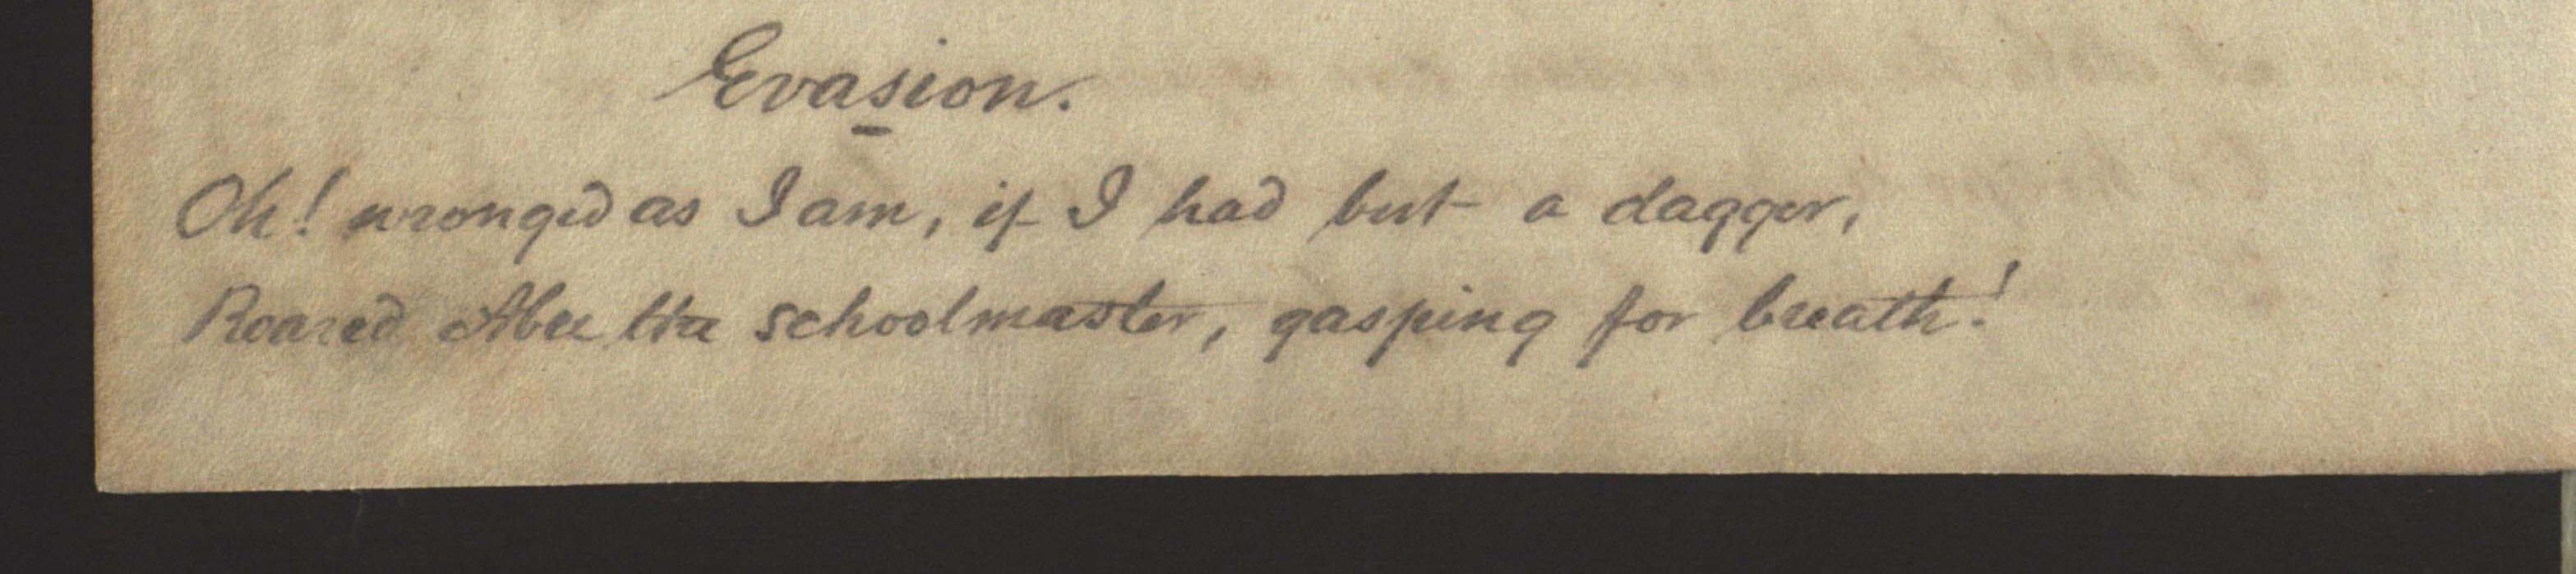 Evasion.
Oh! wronged as I am, if I had but a dagger,
Roared Abee the schoolmaster, gasping for breath!